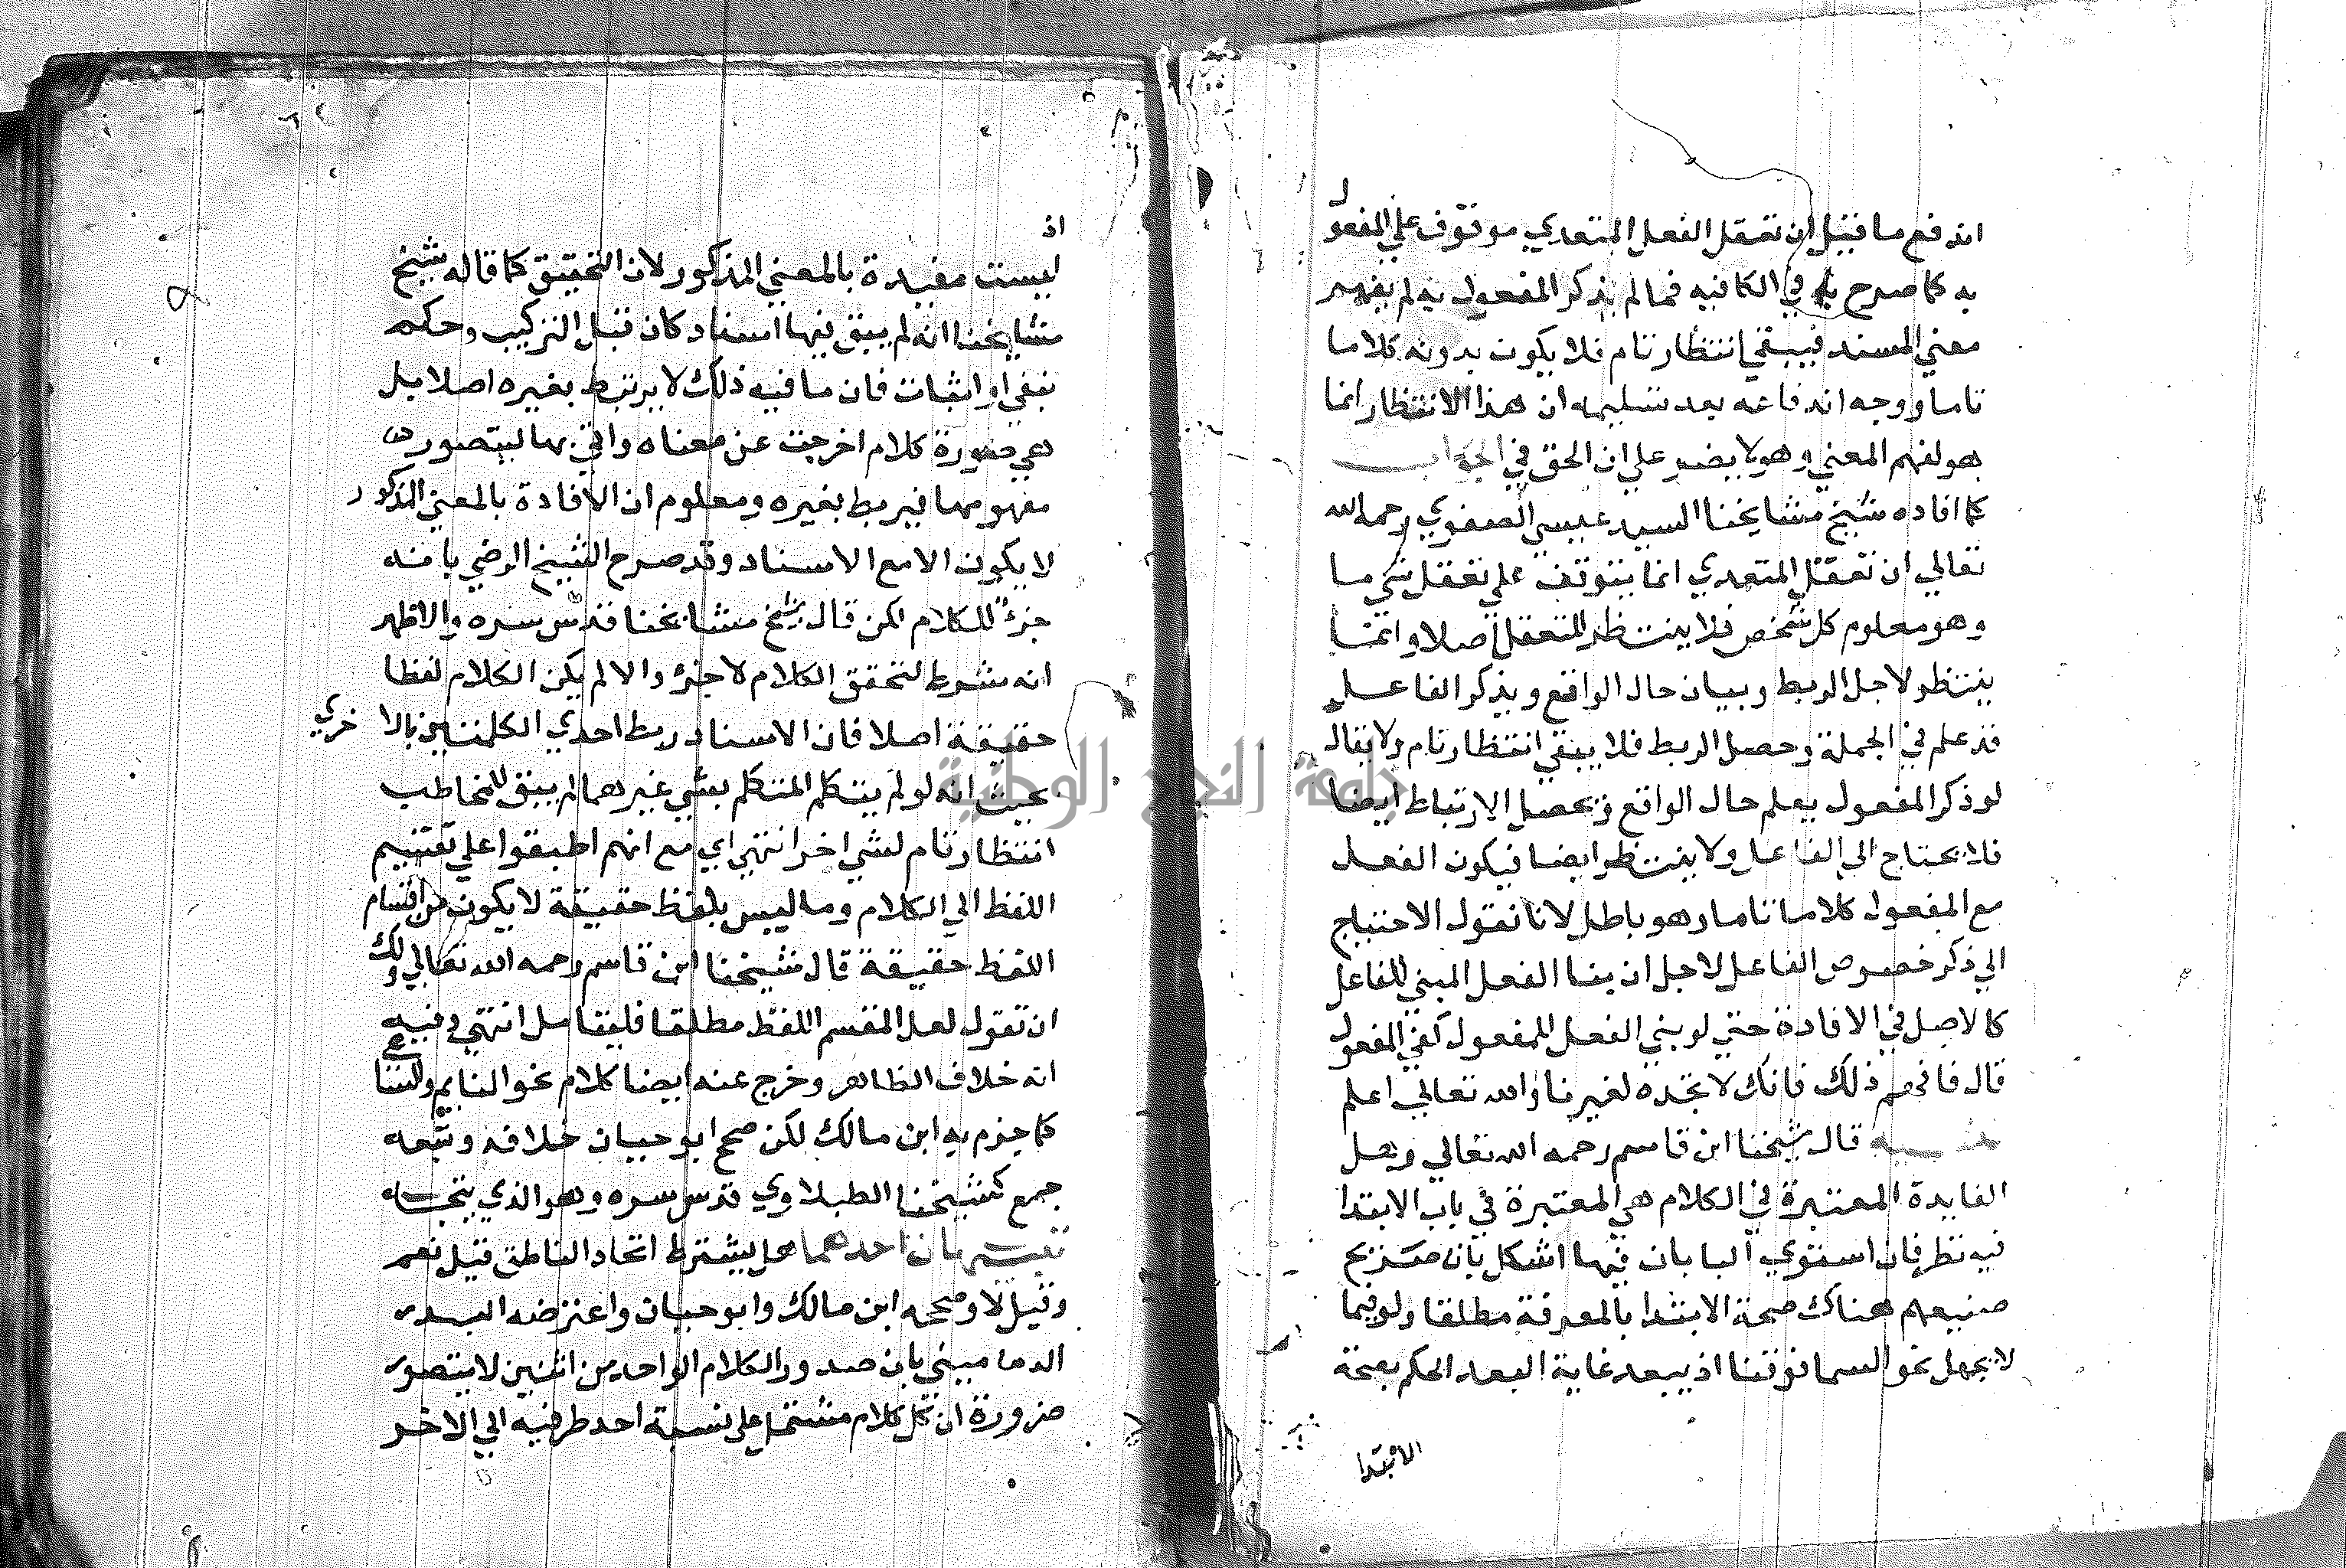 اندفع ما قيل ان تعقل الفعل المتعدي موقوف علي المفعول
به كما صرح به في الكافيه فما لم يذكر المفعول به لم يفهم
معني المسند فيبقي انتظار تام فلا يكون بدونه كلاما
تاما ووجه اندفاعه بعد تسليمه ان هذا الانتظار انما
هو لفهم المعني وهو لا يضر علي ان الحق في الجواب
كما افاده شيخ مشايخنا السيد عيسي الصفوي رحمه الله
تعالي ان تعقل المتعدي انما يتوقف علي تعقل شي ما
وهو معلوم كل شخص فلا ينتظر للتعقل اصلا وانما
ينتظر لاجل الربط وبيان حال الواقع وبذكر الفاعل
قد علم في الجملة وحصل الربط فلا يبقي انتظار تام ولا يقال
لو ذكر المفعول يعلم حال الواقع ويحصل الارتباط ايضا
فلا يحتاج الي الفاعل ولا ينتظر ايضا فيكون الفعل
مع المفعول كلاما تاما وهو باطل لانا نقول الاحتياج
الي ذكر خصوص الفاعل لاجل ان بنا الفعل المبني للفاعل
كالاصل في الافادة حتي لو بني الفعل للمفعول كفي المفعول
قال فافهم ذلك فانك لا تجده لغيرنا والله تعالي اعلم
تنبيه قال شيخنا ابن قاسم رحمه الله تعالي وهل
الفايدة المعتبرة في الكلام هي المعتبرة في باب الابتدا
فيه نظر فان استوي البابان فيها اشكل بان صريح
صنيعهم هناك صحة الابتدا بالمعرفة مطلقا ولو فيما
لا يجهل نحو السما فوقنا اذ يبعد غاية البعد الحكم بصحة
الابتدا
اذ
ليست مفيدة بالمعني المذكور لان التحقيق كما قاله شيخ
مشايخنا انه لم يبق فيها اسناد كان قبل التركيب وحكم
بنفي او اثبات فان ما فيه ذلك لا يرتبط بغيره اصلا بل
هي صورة كلام اخرجت عن معناه واتي بها ليتصور
مفهومها فيربط بغيره ومعلوم ان الافادة بالمعني المذكور
لا يكون الا مع الاسناد وقد صرح الشيخ الرضي بانه
جزء للكلام لكن قال شيخ مشايخنا قدس سره والاظهر
انه شرط لتحقق الكلام لا جزء والا لم يكن الكلام لفظا
حقيقة اصلا فان الاسناد ربط احدي الكلمتين بالاخري
بحيث انه لو لم يتكلم المتكلم بشي غيرهما لم يبق للمخاطب
انتظار تام لشي اخر انتهي اي مع انهم اطبقوا علي تقسيم
اللفظ الي الكلام وما ليس بلفظ حقيقة لا يكون من اقسام
اللفظ حقيقة قال شيخنا ابن قاسم رحمه الله تعالي ولك
ان تقول لعل المقسم اللفظ مطلقا فليتامل انتهي وفيه
انه خلاف الظاهر وخرج عنه ايضا كلام نحو النايم
كما جزم به ابن مالك لكن صحح ابو حيان خلافه وتبعه
جمع كشيخنا الطبلاوي قدس سره وهو الذي يتجه
تنبيهان احدهما هل يشترط اتحاد الناطق قيل نعم
وقيل لا وصححه ابن مالك وابو حيان واعترضه البدر
الدماميني بان صدور الكلام الواحد من اثنين لا يتصور
ضرورة ان كل كلام مشتمل علي نسبة احد طرفيه الي الاخر
جامعة النجاح الوطنية